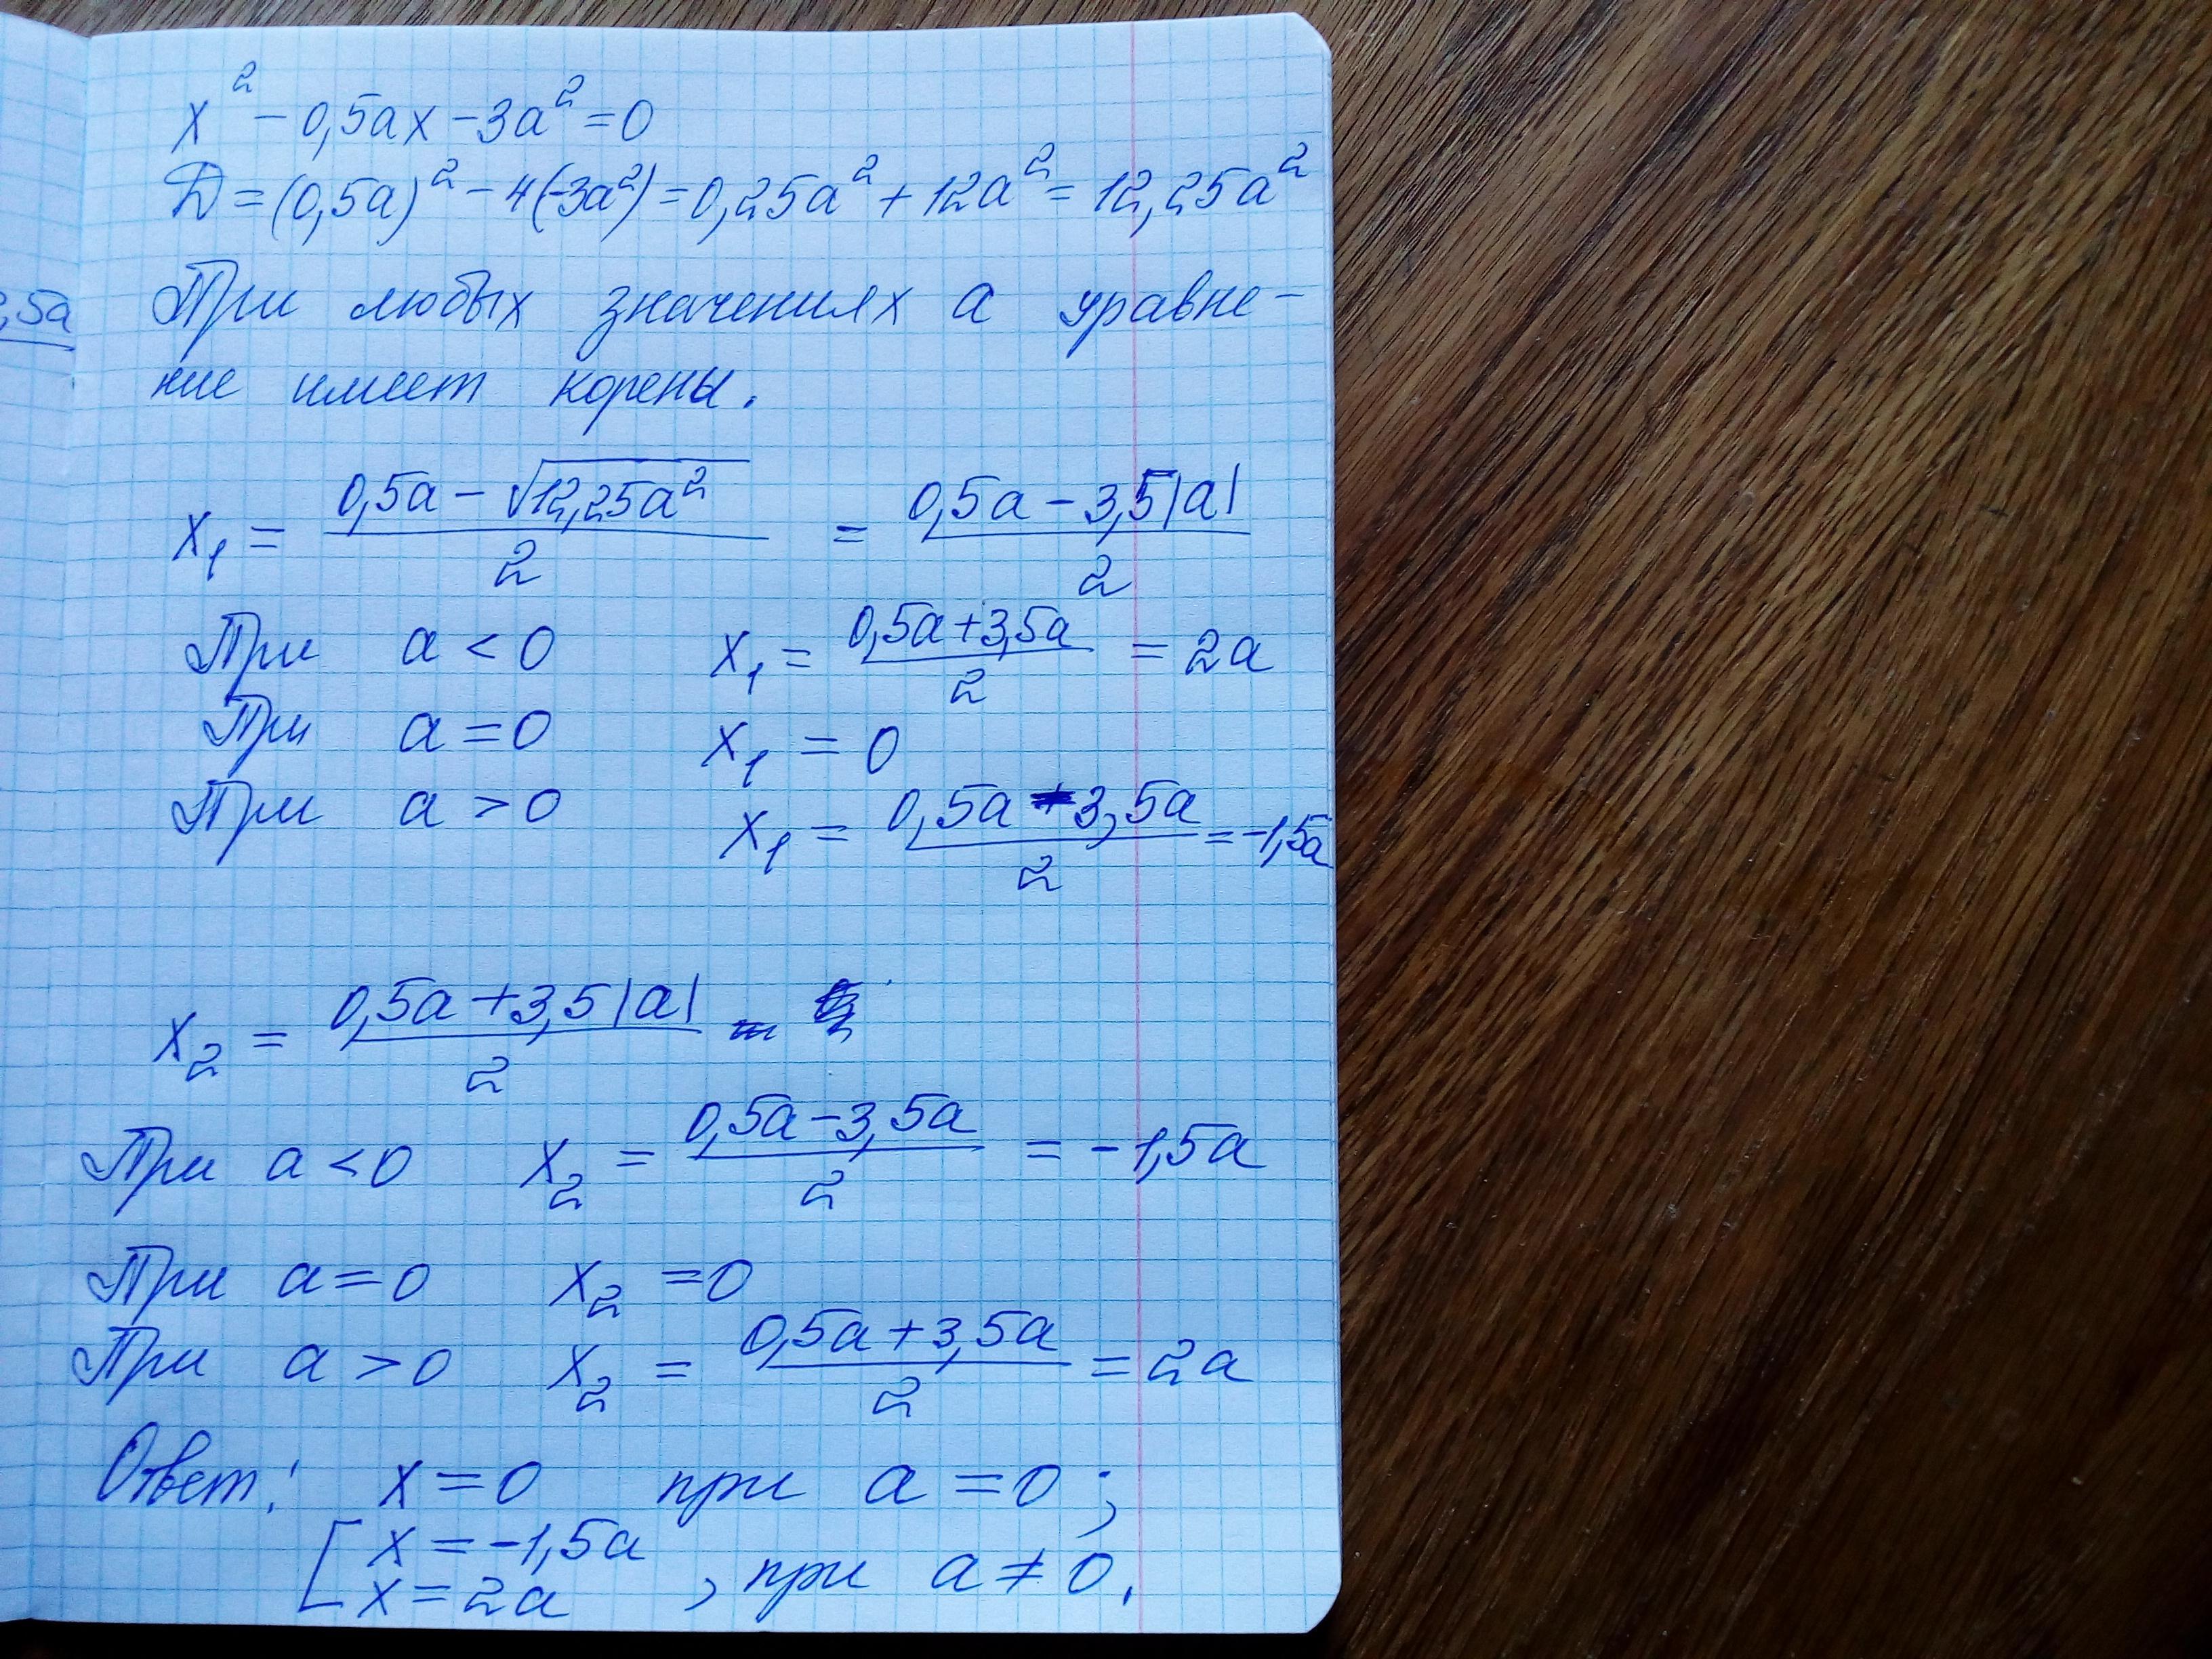 x² - 0,5ax - 3a² = 0
Д = (0,5a)² - 4(-3a²) = 0,25a² + 12a² = 12,25a²
,5a
При любых значениях а уравне-
ние имеет корены.
x₁ = (0,5a - √12,25a²)/2 = (0,5a - 3,5|a|)/2
При a < 0 x₁ = (0,5a + 3,5a)/2 = 2a
При a = 0 x₁ = 0
При a > 0 x₁ = (0,5a - 3,5a)/2 = -1,5a
x₂ = (0,5a + 3,5|a|)/2
При a < 0 x₂ = (0,5a - 3,5a)/2 = -1,5a
При a = 0 x₂ = 0
При a > 0 x₂ = (0,5a + 3,5a)/2 = 2a
Ответ: x = 0 при a = 0;
[ x = -1,5a
x = 2a , при a ≠ 0.